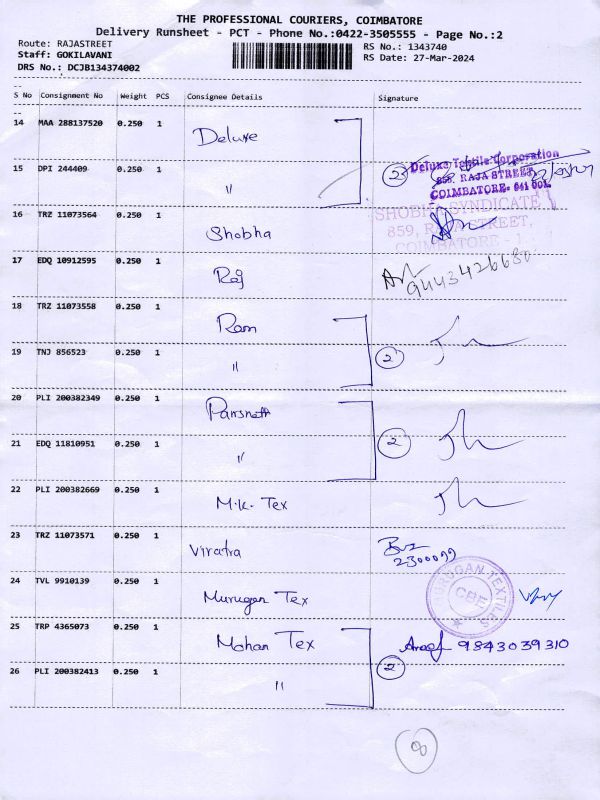 THE PROFESSIONAL COURIERS, COIMBATORE
Delivery Runsheet - PCT - Phone No.:0422-3505555 - Page No.:2
Route: RAJASTREET
Staff: GOKILAVANI
DRS No.: DCJB134374002
RS No.: 1343740
RS Date: 27-Mar-2024
S No Consignment No Weight PCS Consignee Details Signature
14 MAA 288137520 0.250 1 Deluxe
15 DPI 244409 0.250 1 " 2
Deluxe Textile Corporation
RAJA STREET,
COIMBATORE- 641 001.
16 TRZ 11073564 0.250 1 Shobha
SHOBHA SYNDICATE
859, RAJA STREET,
COIMBATORE - 1
17 EDQ 10912595 0.250 1 Raj 9443426680
18 TRZ 11073558 0.250 1 Ram
19 TNJ 856523 0.250 1 " 2
20 PLI 200382349 0.250 1
21 EDQ 11810951 0.250 1 " 2
22 PLI 200382669 0.250 1 M.K. Tex
23 TRZ 11073571 0.250 1 Viratra 2300099
24 TVL 9910139 0.250 1 Murugan Tex
MURUGAN TEXTILES
CBE
25 TRP 4365073 0.250 1 Mohan Tex 9843039310
26 PLI 200382413 0.250 1 " 2
8